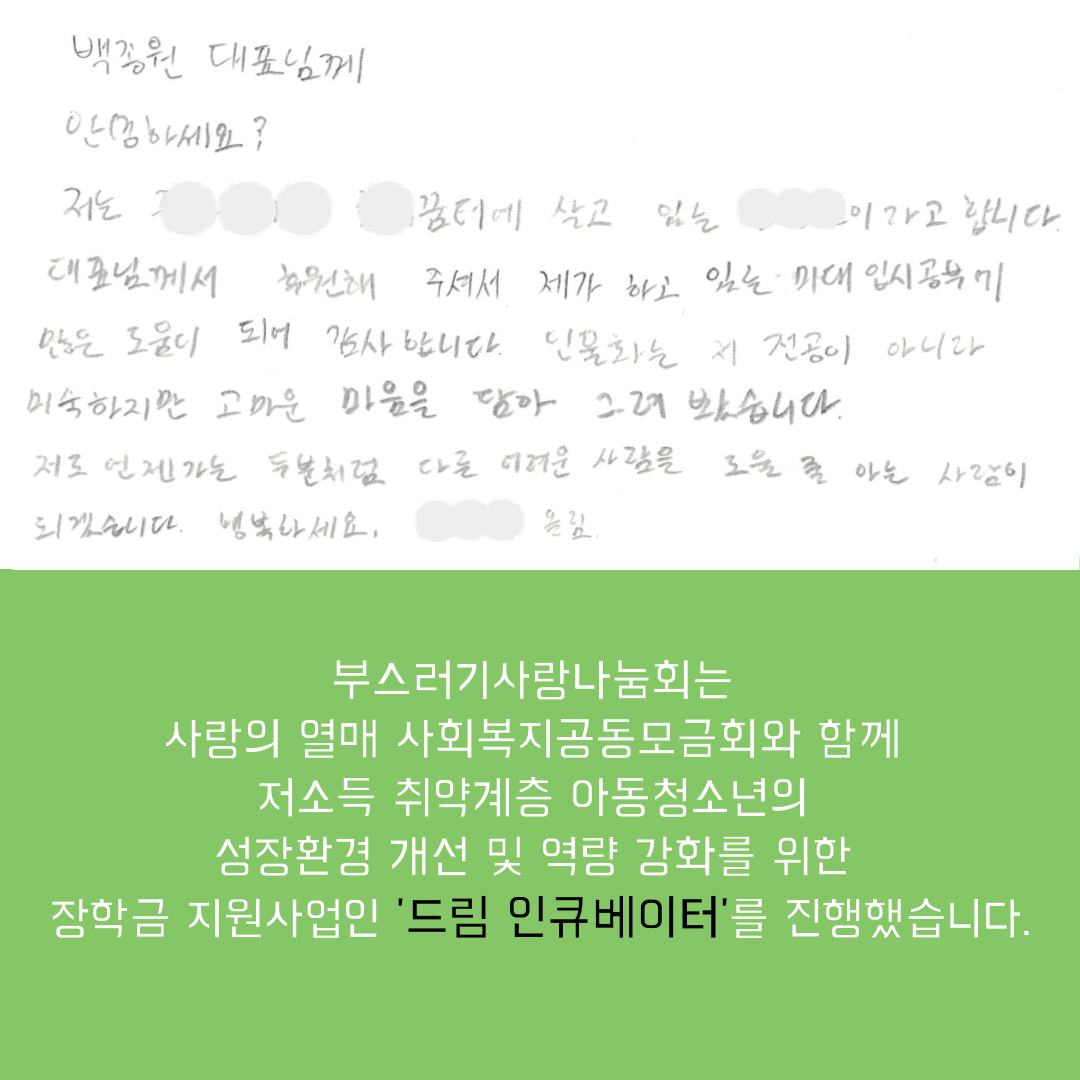 백종원 대표님께
안녕하세요?
저는 꿈터에 살고 있는 이라고 합니다.
대표님께서 후원해 주셔서 제가 하고 있는 미대 입시공부에
많은 도움이 되어 감사합니다. 인물화는 제 전공이 아니라
미숙하지만 고마운 마음을 담아 그려 봤습니다.
저도 언젠가는 두분처럼 다른 어려운 사람을 도울 줄 아는 사람이
되겠습니다. 행복하세요. 올림.
부스러기사랑나눔회는
사랑의 열매 사회복지공동모금회와 함께
저소득 취약계층 아동청소년의
성장환경 개선 및 역량 강화를 위한
장학금 지원사업인 '드림 인큐베이터'를 진행했습니다.